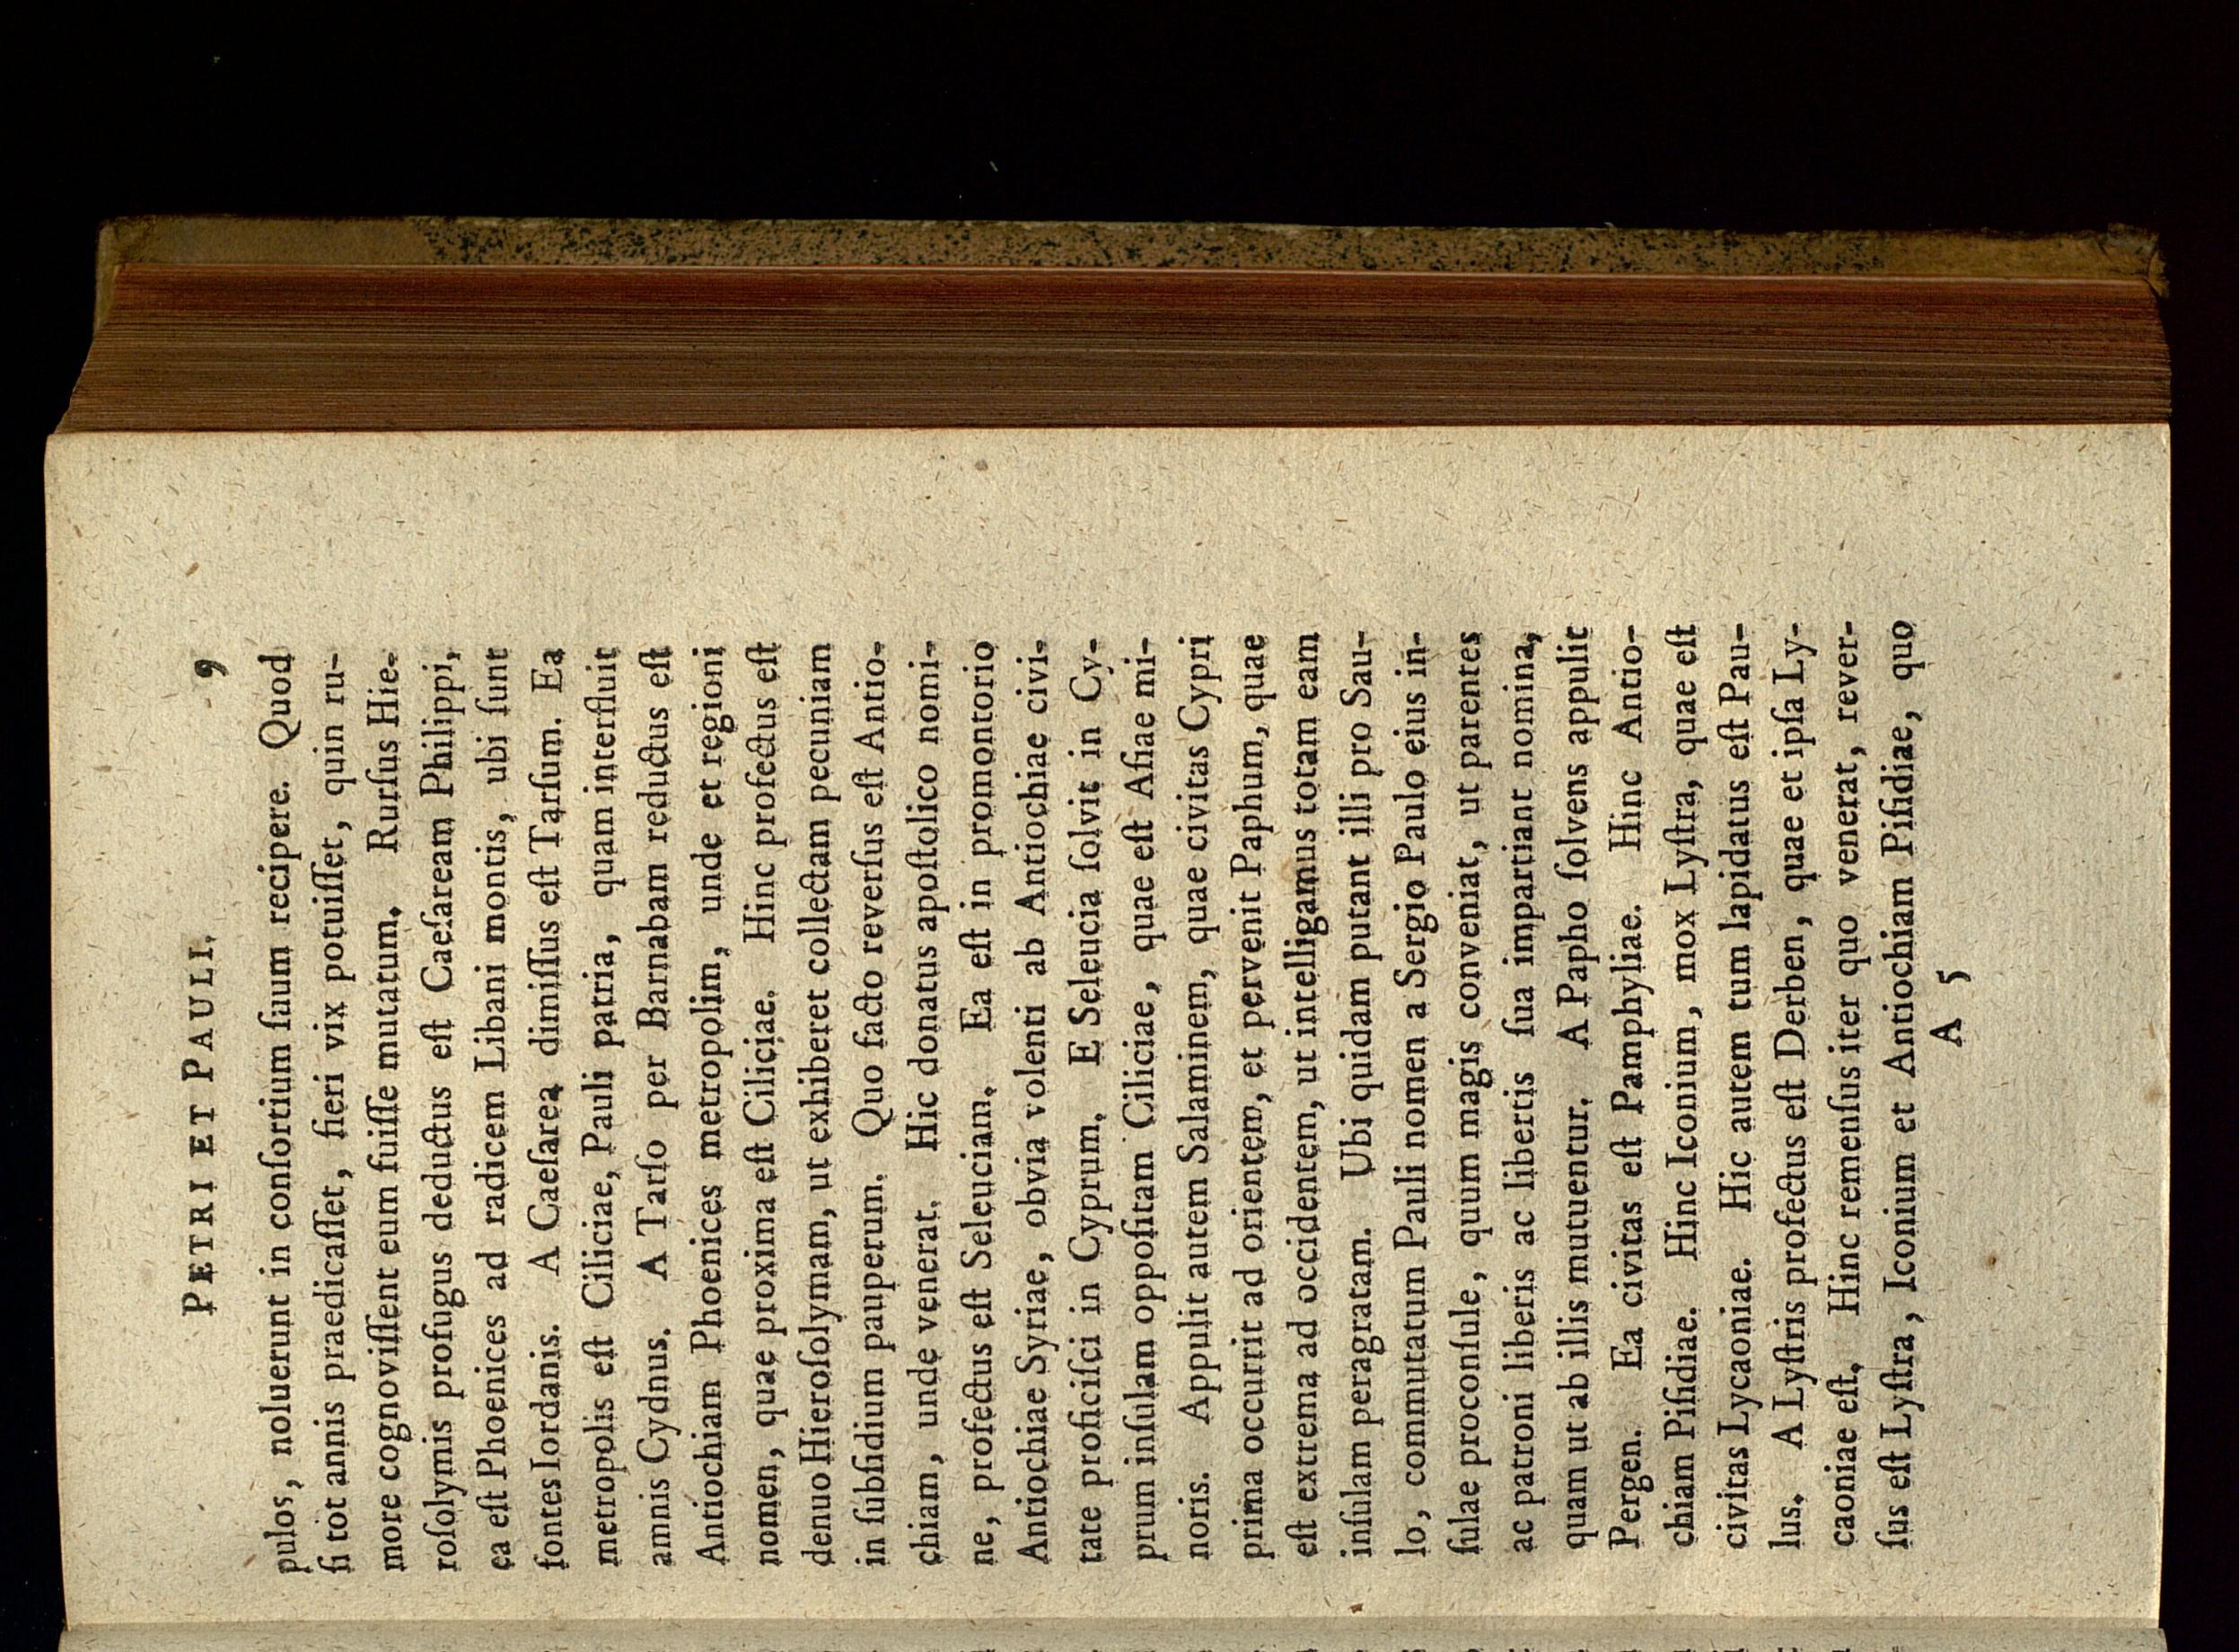 PETRI ET PAULI. 9
pulos, noluerunt in conſortium ſuum recipere. Quod
ſi tot annis praedicaſſet, fieri vix potuiſſet, quin ru-
more cognoviſſent eum fuiſſe mutatum. Rurſus Hie-
roſolymis profugus deductus eſt Caeſaream Philippi,
ea eſt Phoenices ad radicem Libani montis, ubi ſunt
fontes Iordanis. A Caeſarea dimiſſus eſt Tarſum. Ea
metropolis eſt Ciliciae, Pauli patria, quam interfluit
amnis Cydnus. A Tarſo per Barnabam reductus eſt
Antiochiam Phoenices metropolim, unde et regioni
nomen, quae proxima eſt Ciliciae. Hinc profectus eſt
denuo Hieroſolymam, ut exhiberet collectam pecuniam
in ſubſidium pauperum. Quo facto reverſus eſt Antio-
chiam, unde venerat. Hic donatus apoſtolico nomi-
ne, profectus eſt Seleuciam. Ea eſt in promontorio
Antiochiae Syriae, obvia volenti ab Antiochiae civi-
tate proficiſci in Cyprum. E Seleucia ſolvit in Cy-
prum inſulam oppoſitam Ciliciae, quae eſt Aſiae mi-
noris. Appulit autem Salaminem, quae civitas Cypri
prima occurrit ad orientem, et pervenit Paphum, quae
eſt extrema ad occidentem, ut intelligamus totam eam
inſulam peragratam. Ubi quidam putant illi pro Sau-
lo, commutatum Pauli nomen a Sergio Paulo eius in-
ſulae proconſule, quum magis conveniat, ut parentes
ac patroni liberis ac libertis ſua impartiant nomina,
quam ut ab illis mutuentur. A Papho ſolvens appulit
Pergen. Ea civitas eſt Pamphyliae. Hinc Antio-
chiam Piſidiae. Hinc Iconium, mox Lyſtra, quae eſt
civitas Lycaoniae. Hic autem tum lapidatus eſt Pau-
lus. A Lyſtris profectus eſt Derben, quae et ipſa Ly-
caoniae eſt. Hinc remenſus iter quo venerat, rever-
ſus eſt Lyſtra, Iconium et Antiochiam Piſidiae, quo
A 5